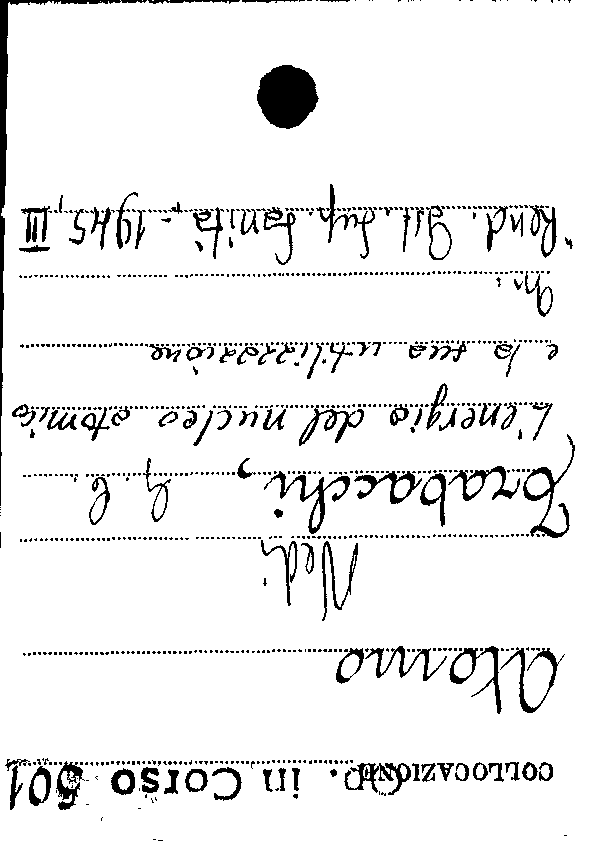 COLLOCAZIONE OP. in Corso 501
Atomo
Vedi
Trabacchi, G. C.
L'energia del nucleo atomico
e la sua utilizzazione
In:
"Rend. Ist. Sup. Sanità - 1945, III